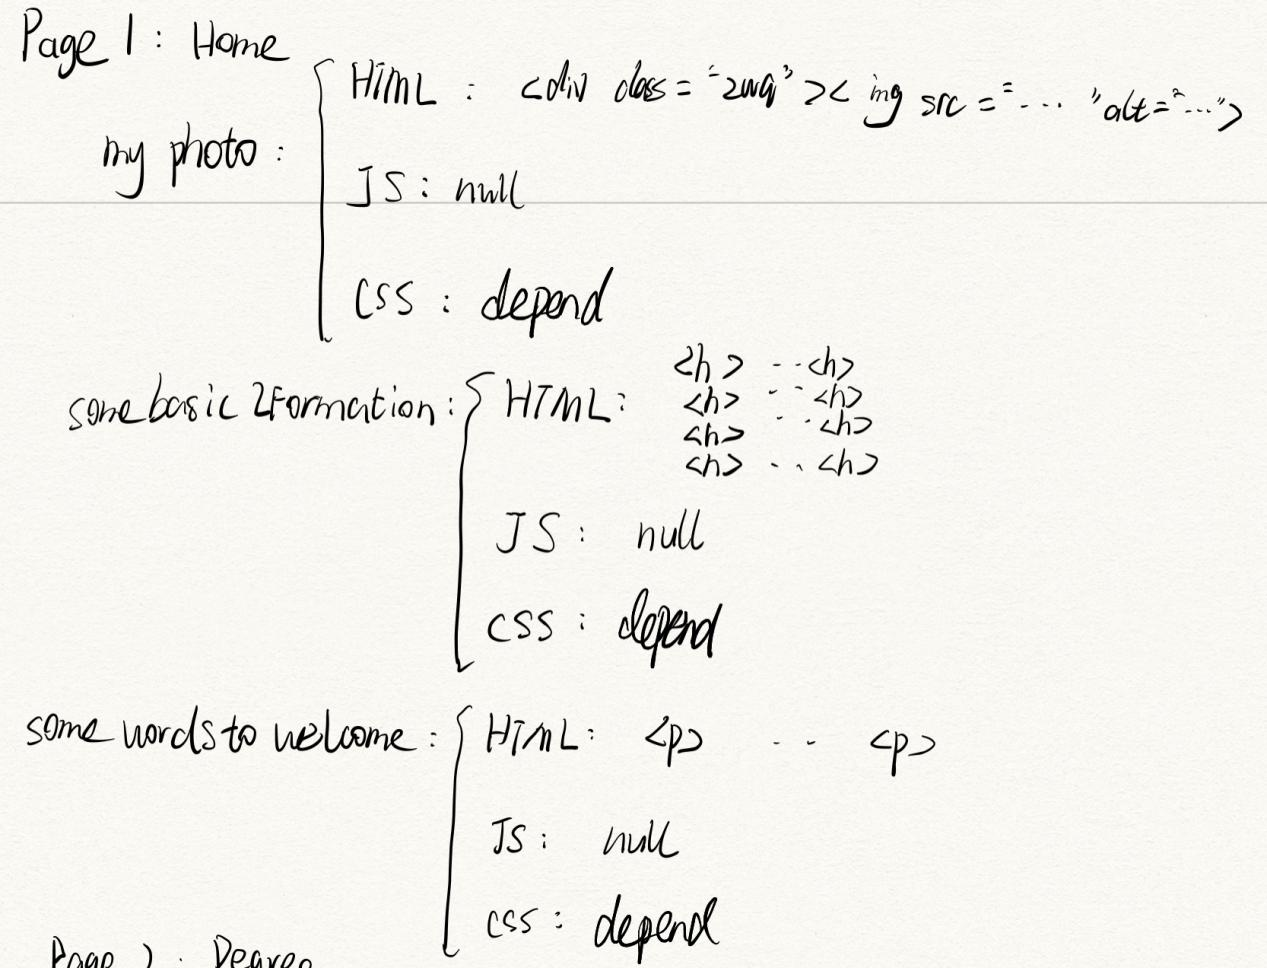 Page 1 : Home
my photo :
HTML : <div class = "zwq" >< img src = "... " alt = "...">
JS : null
CSS : depend
some basic 2Formation :
HTML :
<h> .. <h>
<h> .. <h>
<h> .. <h>
<h> .. <h>
JS : null
CSS : depend
some words to welcome :
HTML : <p> .. <p>
JS : null
CSS : depend
Page 2 : Degree